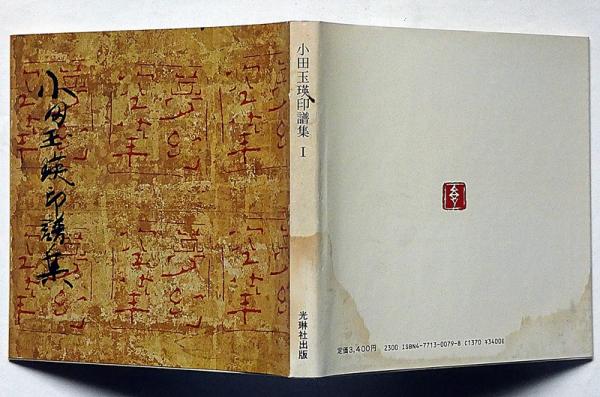 小田玉瑛印譜集
小田玉瑛印譜集 I
光琳社出版
定価3,400円 2300 ISBN4-7713-0079-8 C1370 ¥3400E